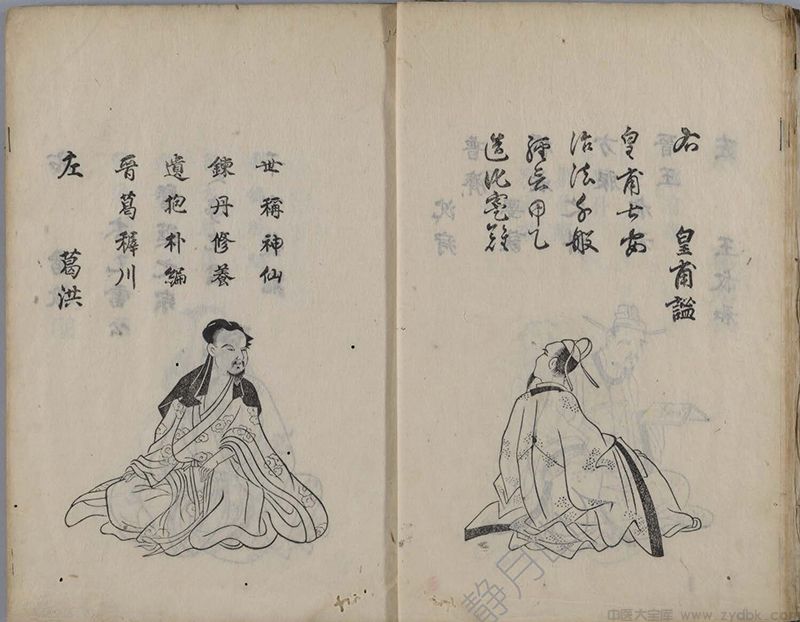 右 皇甫謐
皇甫士安
治法千般
經言甲乙
造化寔難
左 葛洪
晉葛穉川
遺抱朴編
鍊丹修養
世稱神仙
静月
中医大宝库 www.zydbk.com